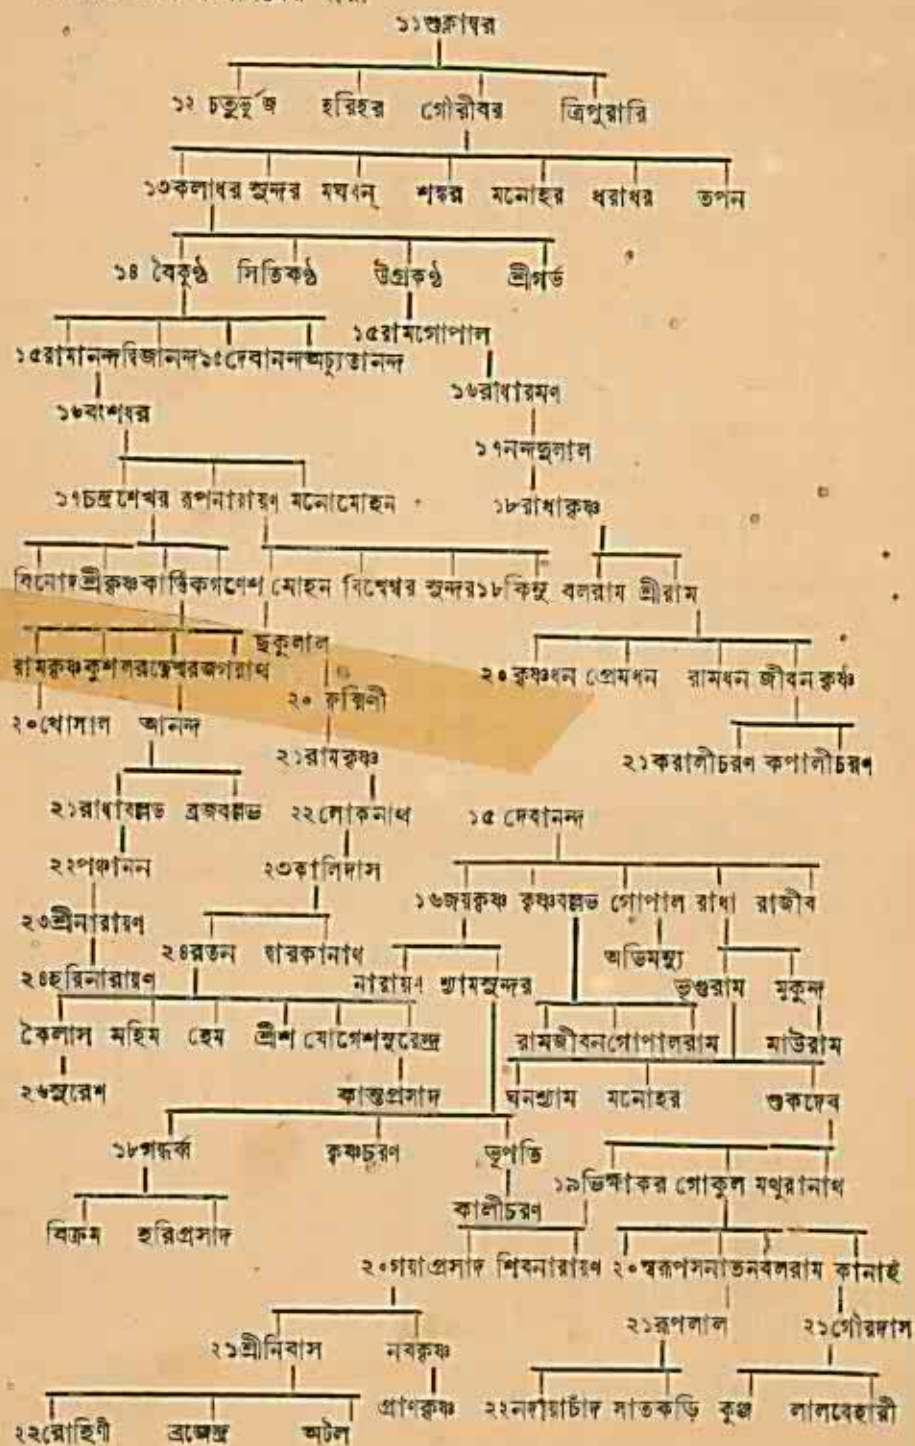 ১১শুক্লাম্বর
১২ চতুর্ভূজ হরিহর গৌরীবর ত্রিপুরারি
১৩কলাধর সুন্দর মঘবন্ শঙ্কর মনোহর ধরাধর তপন
১৪ বৈকুণ্ঠ সিতিকণ্ঠ উগ্রকণ্ঠ শ্রীগর্ভ
১৫রামগোপাল
১৫রামানন্দ দ্বিজানন্দ ১৫দেবানন্দ অচ্যুতানন্দ
১৬রাধারমণ
১৬বংশধর
১৭নন্দদুলাল
১৭চন্দ্রশেখর রূপনারায়ণ মনোমোহন
১৮রাধাকৃষ্ণ
বিনোদ শ্রীকৃষ্ণ কার্ত্তিক গণেশ মোহন বিশ্বেশ্বর সুন্দর ১৮কিম্বু বলরাম শ্রীরাম
ছকুলাল
রামকৃষ্ণ কুশল রত্নেশ্বর জগন্নাথ
২০কৃষ্ণধন প্রেমধন রামধন জীবন কৃষ্ণ
২০ রুক্মিণী
২০খোসাল আনন্দ
২১রামকৃষ্ণ
২১করালীচরণ কপালীচরণ
২১রাধাবল্লভ ব্রজবল্লভ ২২লোকনাথ ১৫ দেবানন্দ
২২পঞ্চানন ২৩কালিদাস
১৬জয়কৃষ্ণ কৃষ্ণবল্লভ গোপাল রাধা রাজীব
২৩শ্রীনারায়ণ
২৪রতন দ্বারকানাথ অভিমন্যু
২৪হরিনারায়ণ নারায়ণ শ্যামসুন্দর ভৃগুরাম মুকুন্দ
কৈলাস মহিম হেম শ্রীশ যোগেশ সুরেন্দ্র রামজীবন গোপালরাম মাউরাম
২৬সুরেশ কান্তপ্রসাদ ঘনশ্যাম মনোহর শুকদেব
১৮গন্ধর্ব্ব কৃষ্ণচরণ ভূপতি
১৯ভিক্ষাকর গোকুল মথুরানাথ
কালীচরণ
বিক্রম হরিপ্রসাদ
২০গয়াপ্রসাদ শিবনারায়ণ ২০স্বরূপ সনাতন বলরাম কানাই
২১রূপলাল ২১গৌরদাস
২১শ্রীনিবাস নবকৃষ্ণ
প্রাণকৃষ্ণ ২২নদীয়াচাঁদ সাতকড়ি কুঞ্জ লালবেহারী
২২রোহিণী ব্রজেন্দ্র অটল